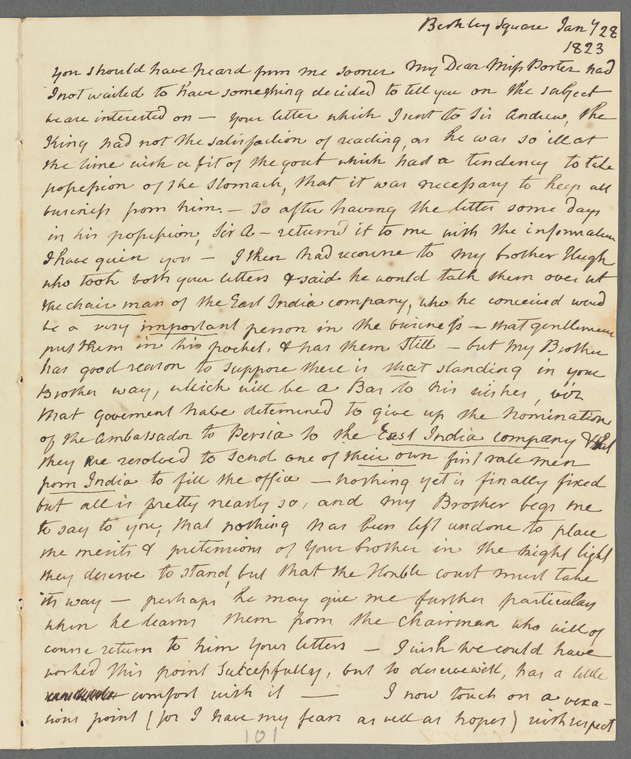 Berkley Square Jany 28
1823
You should have heard from me sooner My Dear Miss Porter had
I not waited to have something decided to tell you on the subject
we are interested on — your letter which I sent to Sir Andrew, the
King had not the satisfaction of reading, as he was so ill at
the time with a fit of the gout which had a tendency to take
possession of the stomach, that it was necessary to keep all
business from him. — So after having the letter some days
in his possession, Sir A — returnd it to me with the information
I have given you — I then had recourse to my brother Hugh
who took both your letters & said he would talk them over wt
the chair man of the East India company, who he conceived woud
be a very important person in the business — that gentleman
put them in his pocket, & has them still — but my Brother
has good reason to suppose there is that standing in your
Brothers way, which will be a Bar to his wishes, viz
that Goverment have determined to give up the nomination
of the Ambassador to Persia to the East India company & that
they are resolved to send one of their own first rate men
from India to fill the office — nothing yet is finally fixed
but all is pretty nearly so, and my Brother begs me
to say to you, that nothing has been left undone to place
the merits & pretensions of your brother in the bright light
they deserve to stand, but that the Honble court must take
its way — perhaps he may give me further particulars
when he learns them from the Chairman who will of
course return to him your letters — I wish we could have
worked this point successfully, but to deserve well, has a little
comfort with it — I now touch on a vexa-
tious point (for I have my fears as well as hopes) with respect
101